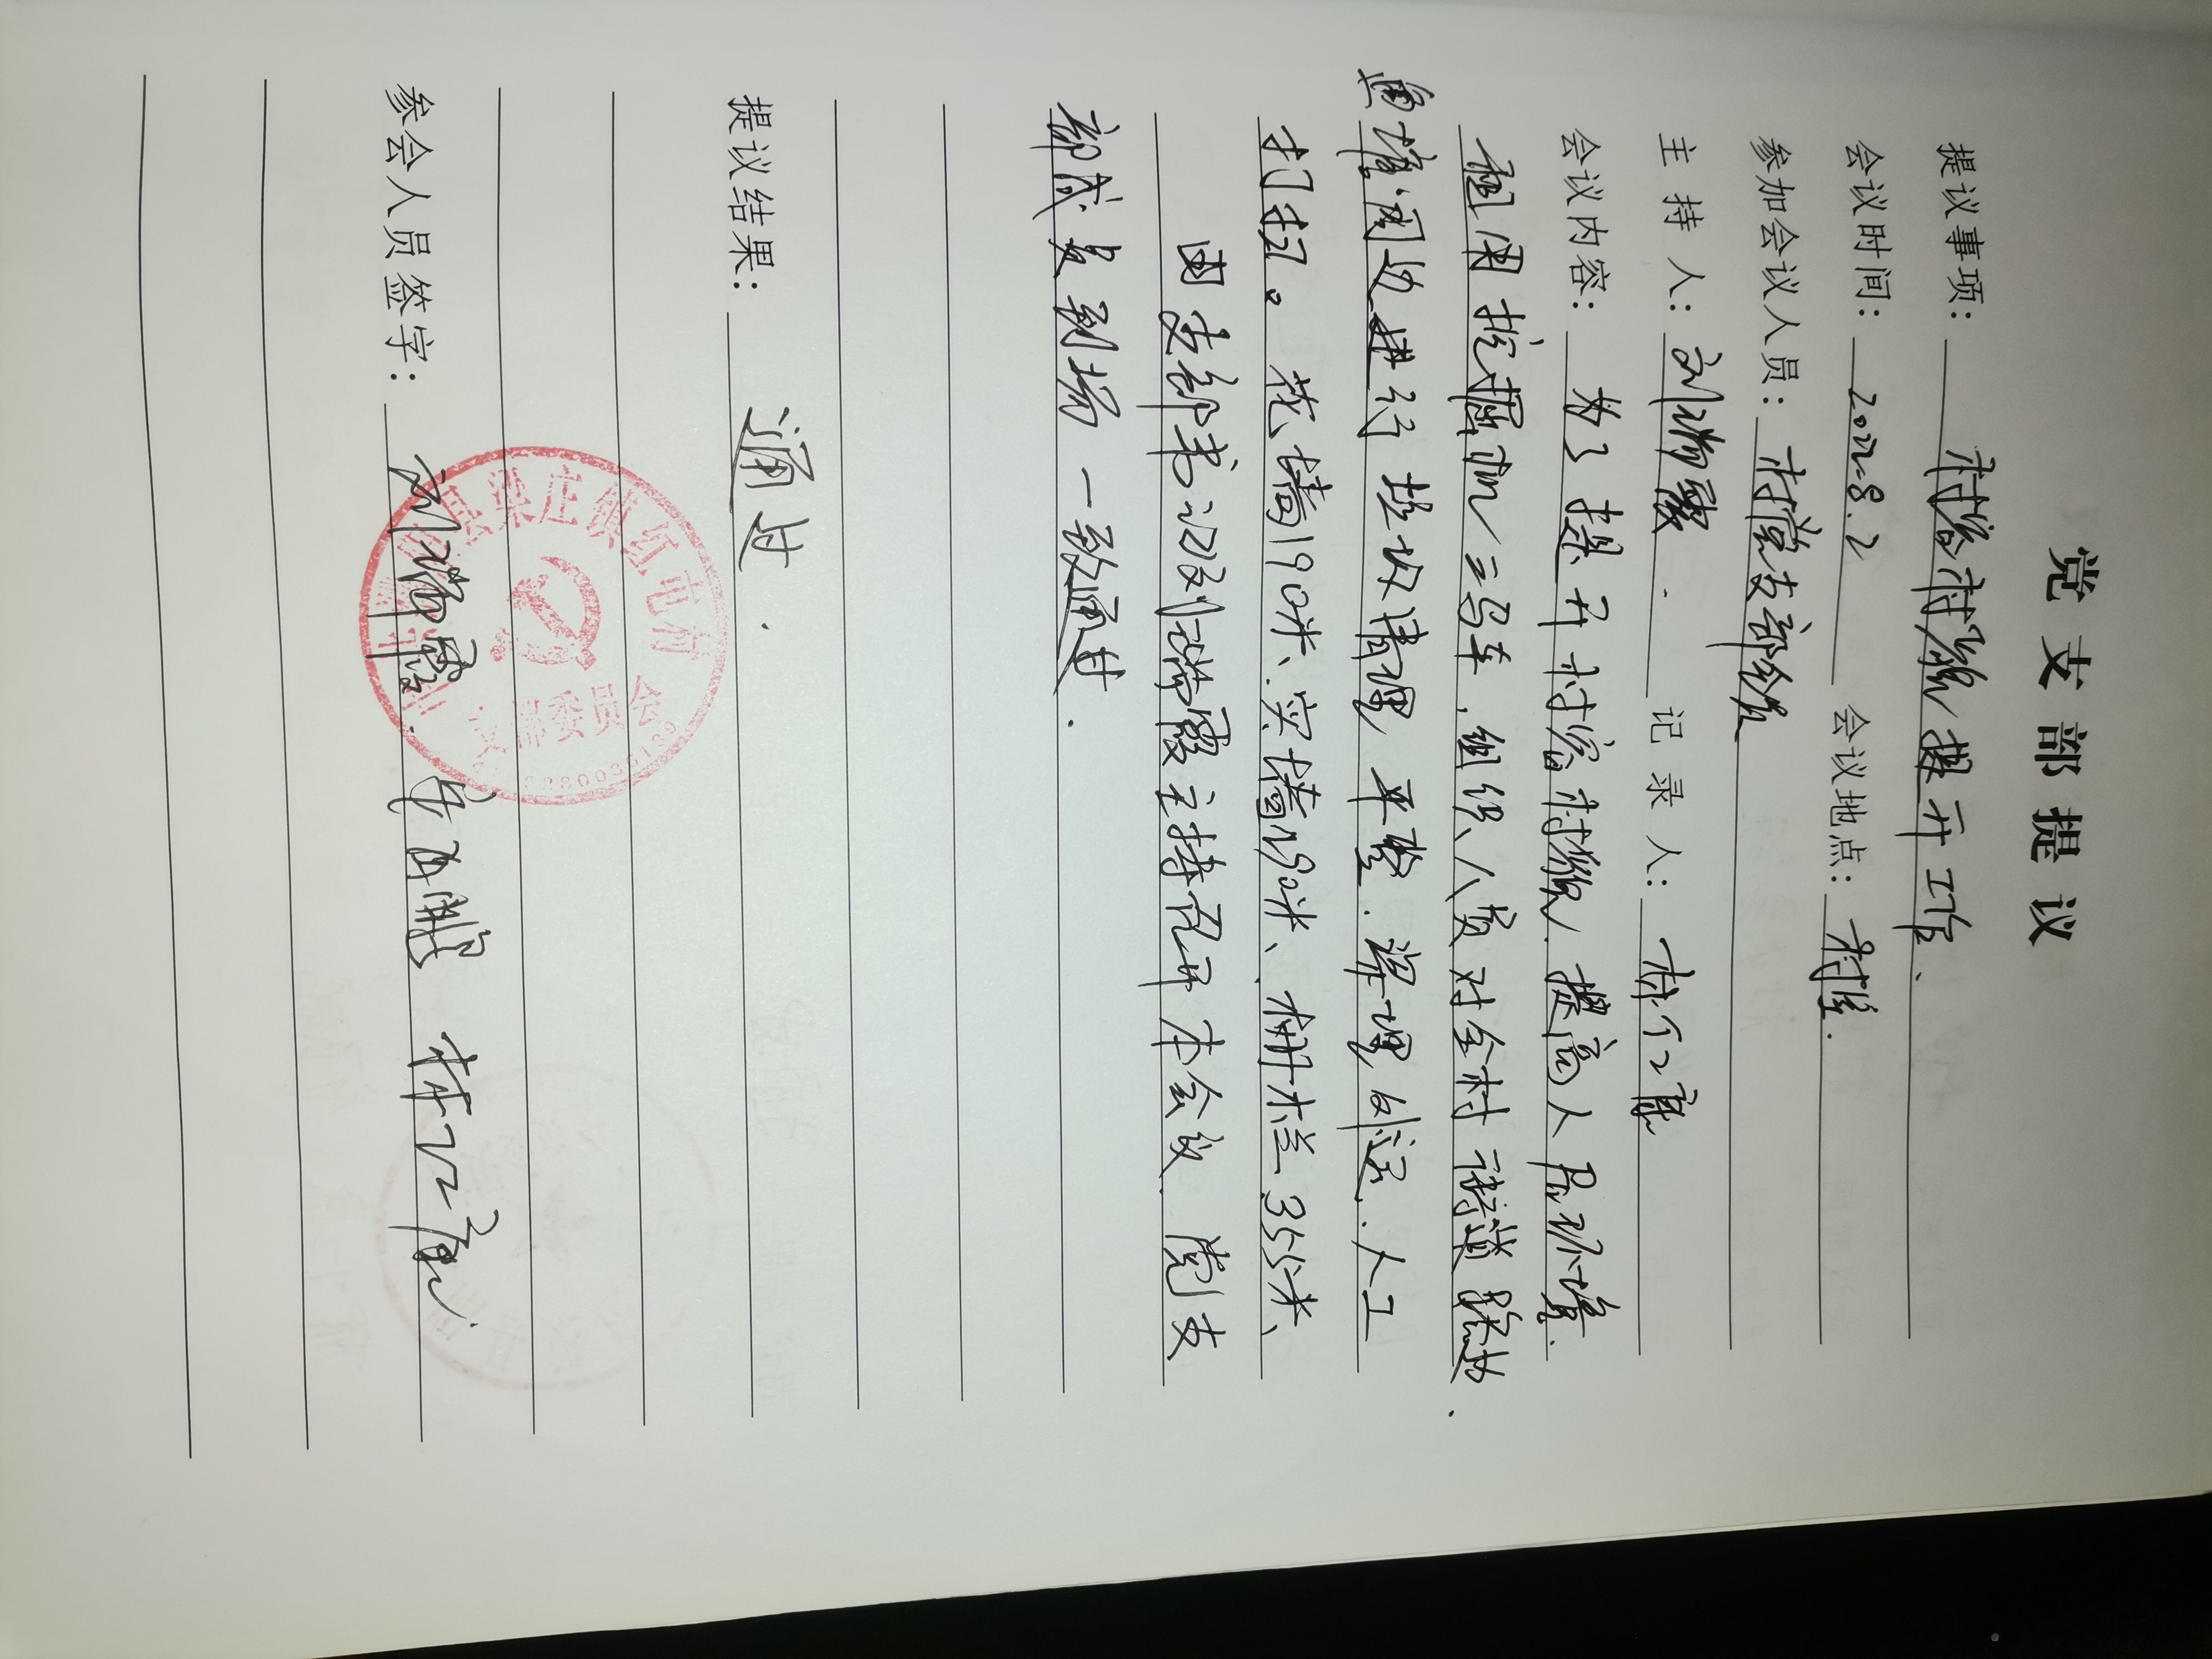 党支部提议
提议事项: 村容村貌提升工作.
会议时间: 2022.8.2 会议地点: 村室.
参加会议人员: 村党支部全员
主持人: 刘瑞霞. 记录人: 林仁康
会议内容: 为了提升村容村貌.提高人居环境.
租用挖掘机三马车,组织人员对全村街道路边.
鱼塘周边进行垃圾清理 平整.深埋外运.人工
打扫。花墙190米、实墙190米、栅栏355米、
由支部书记刘瑞霞主持召开本会议.党支
部成员到场 一致通过.
提议结果: 通过.
庄镇红屯村
委员会
参会人员签字: 刘瑞霞. 鹏 林仁康